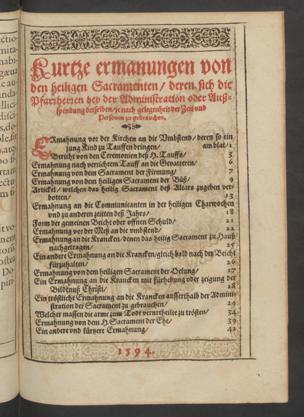 Kurtze ermanungen von
den heiligen Sacramenten / deren sich die
Pfarrherren bey der Administration oder Auß-
spendung derselben / je nach gelegenheit der Zeit und
Personen zu gebrauchen.
ERmahnung vor der Kirchen an die Umbstend / deren so ein
jung Kind zu Tauffen bringen / am blat / 1
Bericht von den Ceremonien des H. Tauffs / 3
Ermahnung nach verrichtem Tauff an die Gevattern / 6
Ermahnung von dem Sacrament der Firmung / 7
Ermahnung von dem heiligen Sacrament der Büß / 9
Artickel / welchen das heilig Sacrament deß Altars zugeben ver-
botten / 13
Ermahnung an die Communicanten in der heiligen Charwochen
und zu anderen zeitten deß Jahrs / 18
Form der gemeinen Beicht oder offnen Schuld / 21
Ermahnung vor der Meß an die umbstend / 22
Ermahnung an die Krancken / denen das heilig Sacrament zu Hauß
nachgetragen / 25
Ein andere Ermahnung an die Krancken / gleich bald nach der Beicht
fürzuhalten / 26
Ermahnung von dem heiligen Sacrament der Oelung / 27
Ein Ermahnung an die Krancken mit fürhebung oder zeigung der
Bildtnuß Christi / 28
Ein tröstliche Ermahnung an die Krancken ausserthalb der Admini-
stration der Sacrament zu gebrauchen / 24
Welcher massen die arme zum Todt verurtheilte zu trösten / 34
Ermahnung von dem H. Sacrament der Ehe / 39
Ein andere und kürtzere Ermahnung / 42
1594.